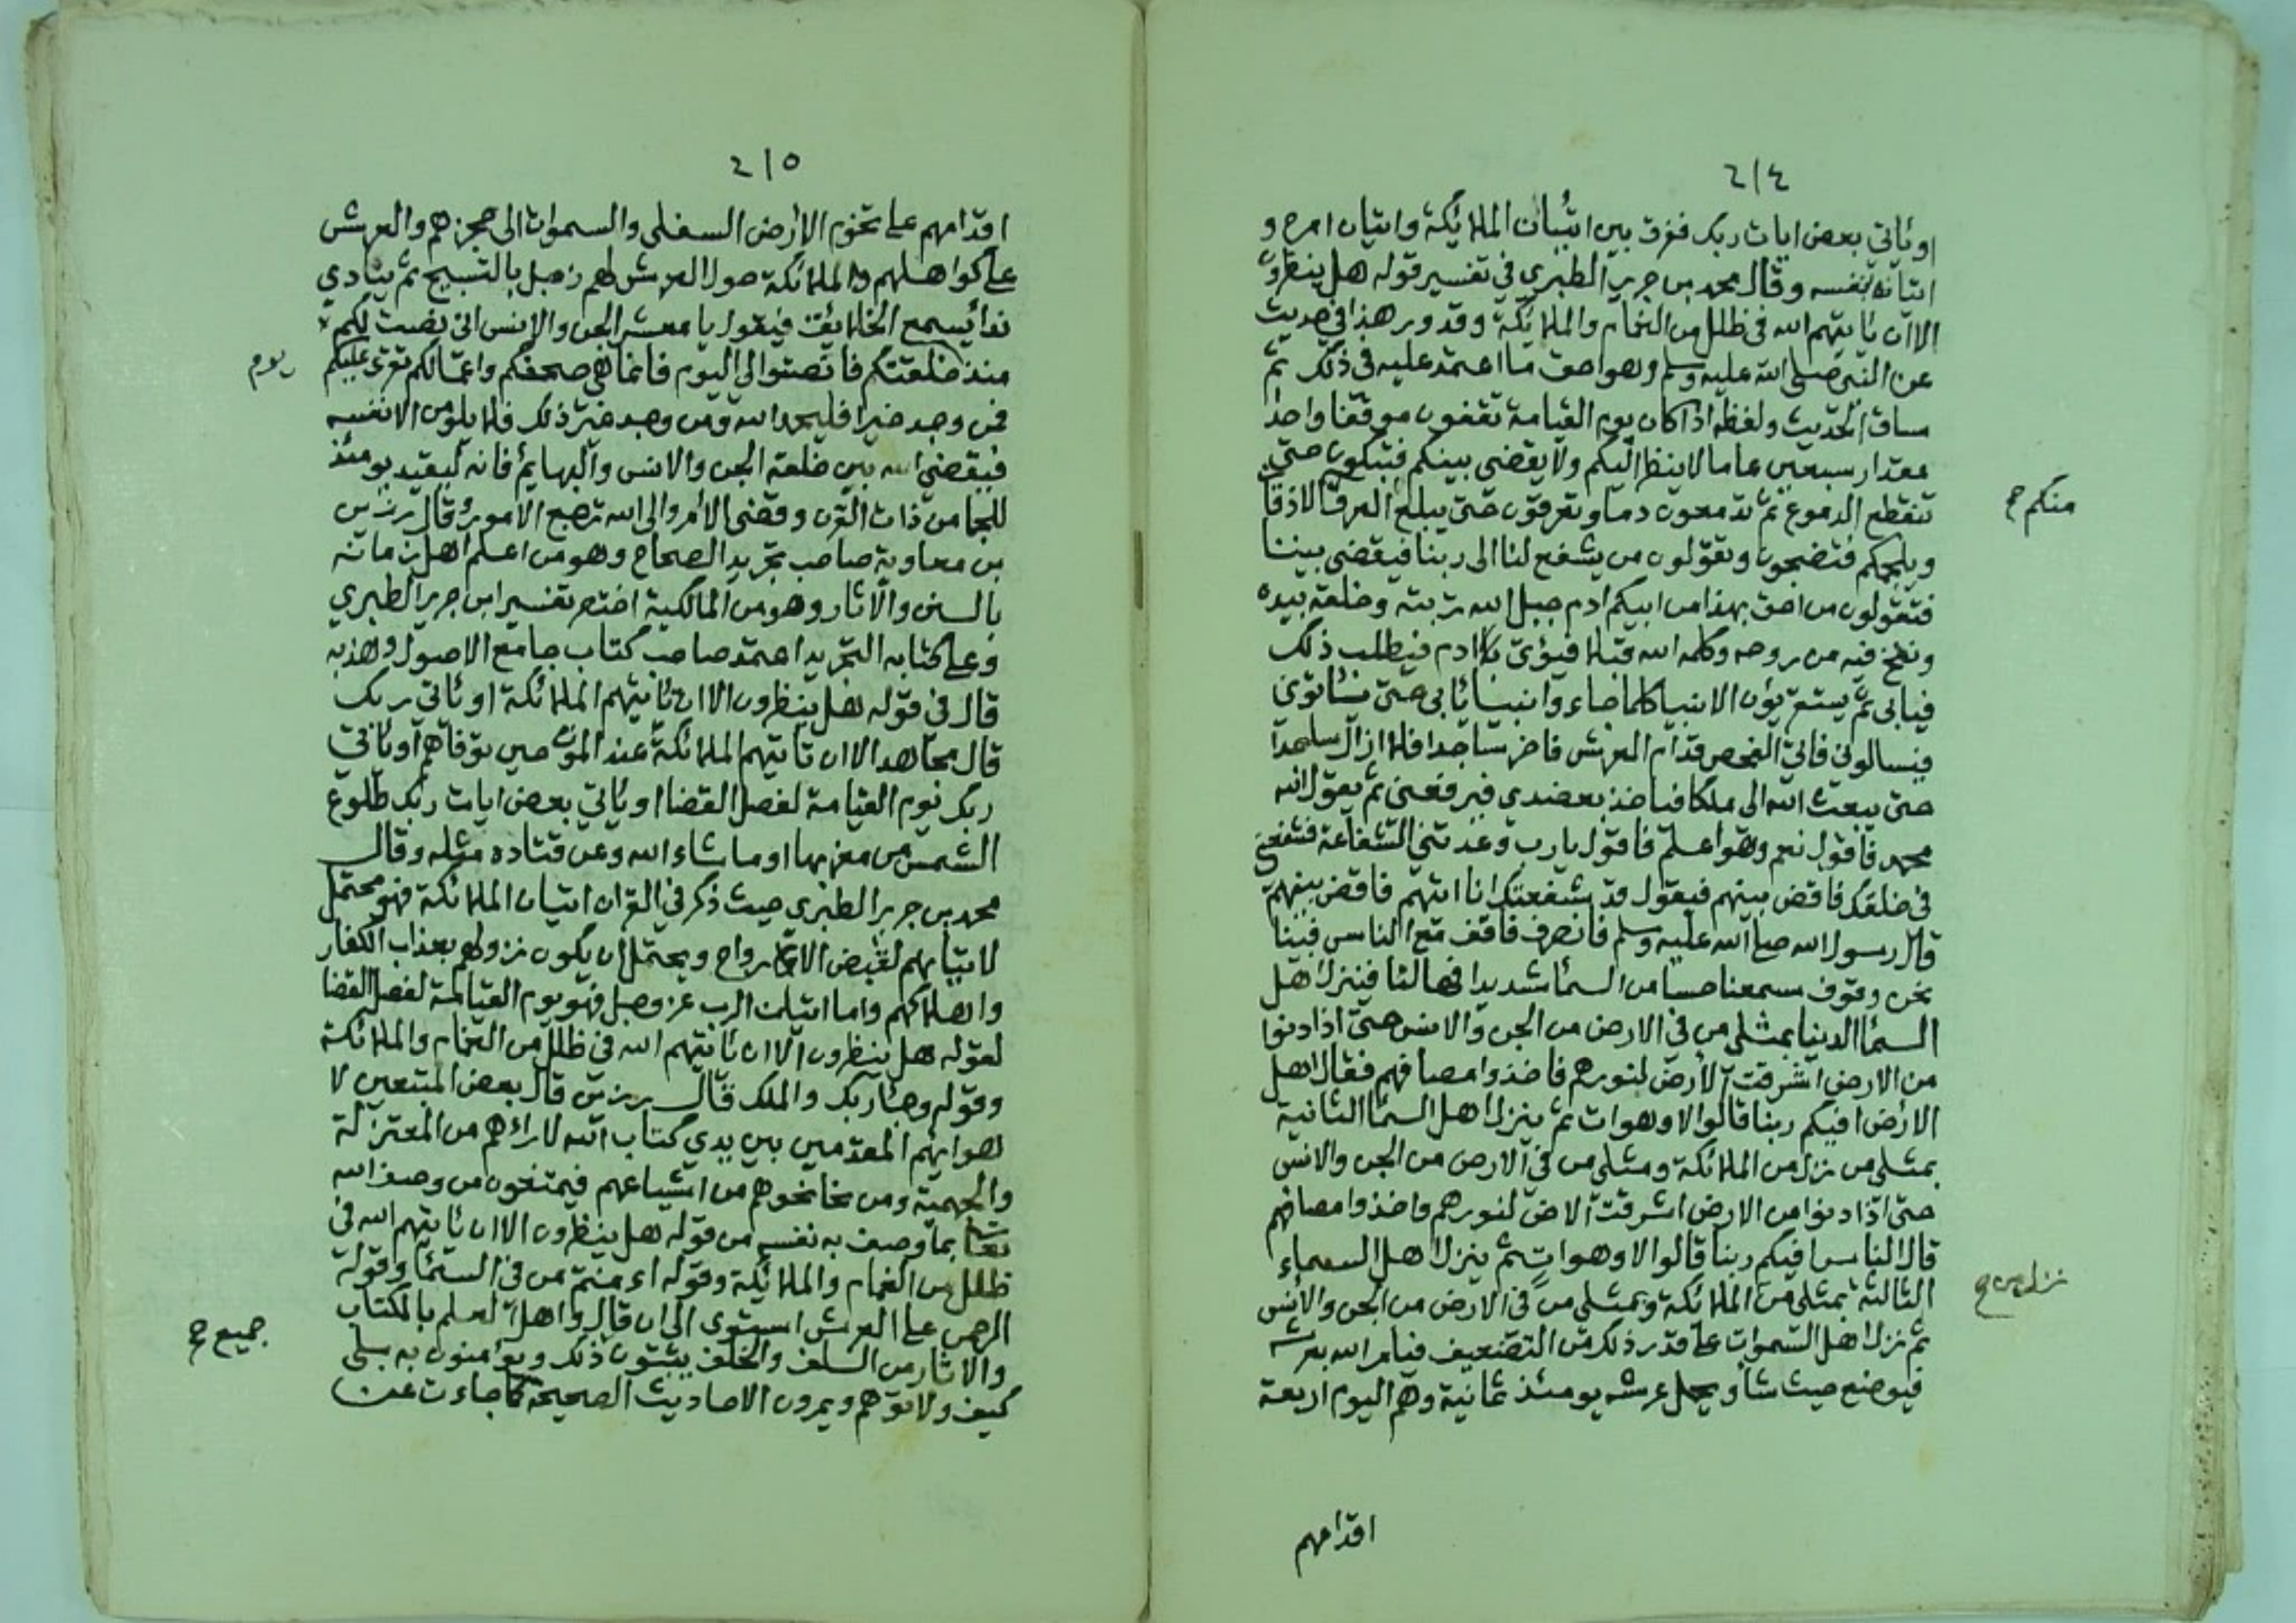 ٢١٤
او ياتي بعض ايات ربك ففرق بين اتيان الملائكة واتيان امره و
اتيانه بنفسه وقال محمد بن جرير الطبري في تفسير قوله هل ينظرون
الا ان ياتيهم الله في ظلل من الغمام والملائكة وقد ورد هذا في حديث
عن النبي صلى الله عليه وسلم وهو احق ما اعتمد عليه في ذلك ثم
ساق الحديث ولفظه اذا كان يوم القيامة تقفون موقفا واحدا
مقدار سبعين عاما لا ينظر اليكم ولا يقضى بينكم فتبكون حتى
تنقطع الدموع ثم تدمعون دما وتعرقون حتى يبلغ العرق الاذقان
منكم ح
ويلجمكم فتضجون وتقولون من يشفع لنا الى ربنا فيقضي بيننا
فتقولون من احق بهذا من ابيكم ادم جبل الله تربته وخلقه بيده
ونفخ فيه من روحه وكلمه الله قبلا فيؤتى ادم فيطلب ذلك
فيابى ثم يستقرئون الانبيا كلما جاءوا نبيا يابى حتى ياتوني
فيسالوني فاتي الفحص قدام العرش فاخر ساجدا فلا ازال ساجدا
حتى يبعث الله الي ملكا فياخذ بعضدي فيرفعني ثم يقول الله
محمد فاقول نعم وهو اعلم فاقول يارب وعدتني الشفاعة فشفعني
في خلقك فاقض بينهم فيقول قد شفعتك انا اتيهم فاقض بينهم
قال رسول الله صلى الله عليه وسلم فانصرف فاقف مع الناس فبينا
نحن وقوف سمعنا حسا من السما شديدا فهالنا فينزل اهل
السما الدنيا بمثلي من في الارض من الجن والانس حتى اذا دنوا
من الارض اشرقت الارض لنورهم فاخذوا مصافهم فقال اهل
الارض افيكم ربنا قالوا لا وهو ات ثم ينزل اهل السما الثانية
بمثلي من نزل من الملائكة ومثلي من في الارض من الجن والانس
حتى اذا دنوا من الارض اشرقت الارض لنورهم واخذوا مصافهم
قال الناس افيكم ربنا قالوا لا وهو ات ثم ينزل اهل السماء
نزل من ح
الثالثة بمثلي من الملائكة وبمثلي من في الارض من الجن والانس
ثم نزل اهل السموات على قدر ذلك من التضعيف فيامر الله بعرشه
فيوضع حيث شأ ويحمل عرشه يومئذ ثمانية وهم اليوم اربعة
اقدامهم
٢١٥
اقدامهم على تخوم الارض السفلى والسموات الى حجزهم والعرش
على كواهلهم والملائكة حول العرش لهم زجل بالتسبيح ثم ينادي
نداء يسمع الخلائق فيقول يا معشر الجن والانس اني نصت لكم
منذ خلقتكم فانصتوا الي اليوم فانما هي صحفكم واعمالكم تقرى عليكم
يوم
فمن وجد خيرا فليحمد الله ومن وجد غير ذلك فلا يلومن الا نفسه
فيقضي الله بين خلقه الجن والانس والبهايم فانه ليقيد يومئذ
للجما من ذات القرن وقضى الامر والى الله ترجع الامور وقال رزين
بن معاوية صاحب تجريد الصحاح وهو من اعلم اهل زمانه
بالسنن والاثار وهو من المالكية اختصر تفسير ابن جرير الطبري
وعلى كتابه التجريد اعتمد صاحب كتاب جامع الاصول وهذبه
قال في قوله هل ينظرون الا ان تاتيهم الملائكة او ياتي ربك
قال مجاهد الا ان تاتيهم الملائكة عند الموت حين توفاهم او ياتي
ربك يوم القيامة لفصل القضا او ياتي بعض ايات ربك طلوع
الشمس من مغربها او ما شاء الله وعن قتاده مثله وقال
محمد بن جرير الطبري حيث ذكر في القران اتيان الملائكة فهو محتمل
لاتيانهم لقبض الارواح ويحتمل ان يكون نزولهم بعذاب الكفار
واهلاكهم واما اتيان الرب عز وجل فهو يوم القيامة لفصل القضا
لقوله هل ينظرون الا ان ياتيهم الله في ظلل من الغمام والملائكة
وقوله وجاء ربك والملك قال رزين قال بعض المتبعين لا
هوائهم المقدمين بين يدي كتاب الله لاراءهم من المعتزلة
والجهمية ومن نحا نحوهم من اشياعهم فيمتنعون من وصف الله
تعالى بما وصف به نفسه من قوله هل ينظرون الا ان ياتيهم الله في
ظلل من الغمام والملائكة وقوله اءمنتم من في السما وقوله
الرحمن على العرش استوى الى ان قال واهل العلم بالكتاب
جميع ح
والاثار من السلف والخلف يثبتون ذلك ويؤمنون به بلى
كيف ولا توهم ويمرون الاحاديث الصحيحة كما جاءت عن